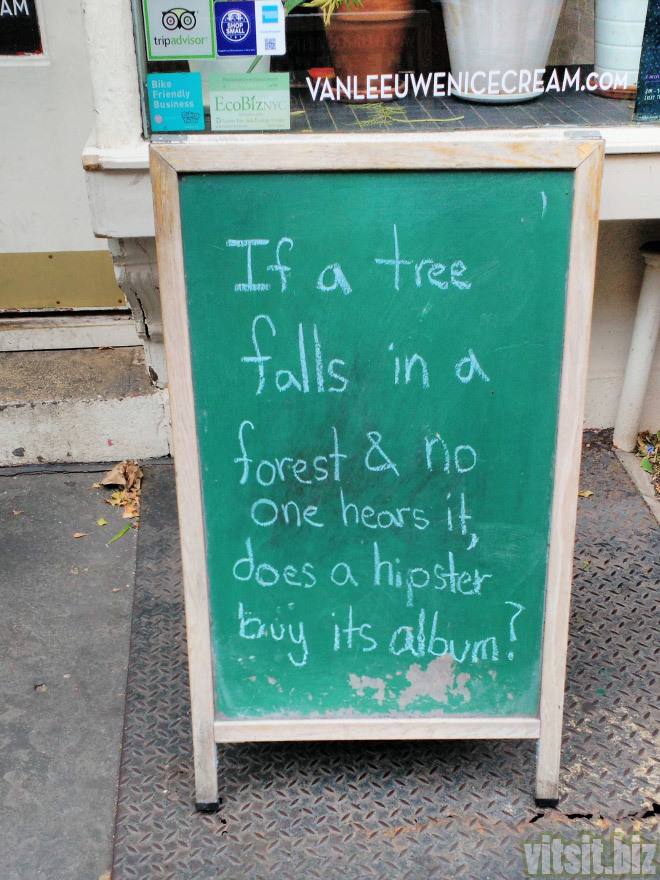 AM
tripadvisor
SHOP
SMALL
Bike
Friendly
Business
EcoBizNYC
VANLEEUWENICECREAM.COM
If a tree
falls in a
forest & no
one hears it,
does a hipster
buy its album?
vitsit.biz